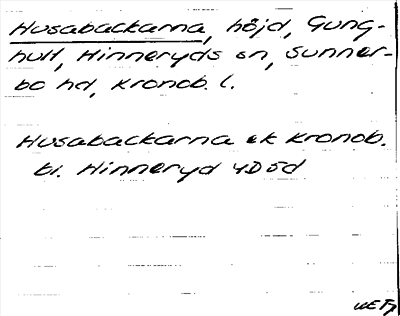 Husabackarna, höjd, Gung-
hult, Hinneryds sn, Sunner-
bo hd, Kronob. l.
Husabackarna ek Kronob.
bl. Hinneryd 4D5d